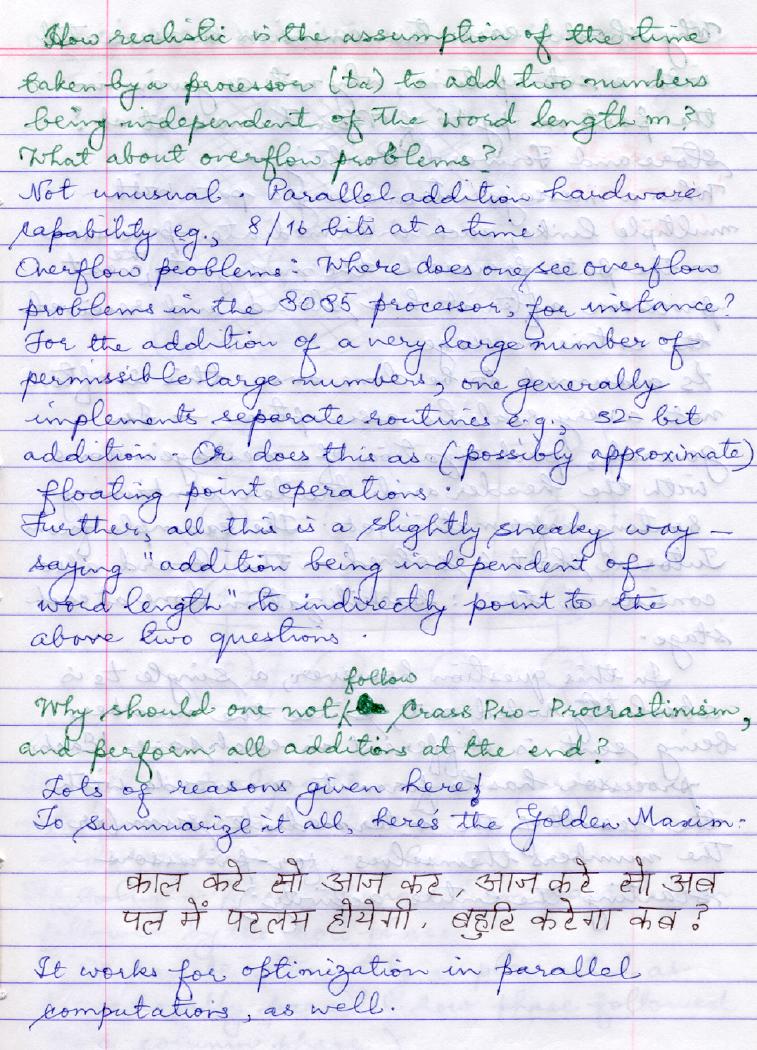 How realistic is the assumption of the time
taken by a processor (ta) to add two numbers
being independent of the word length m?
What about overflow problems?
Not unusual. Parallel addition hardware
capability eg., 8/16 bits at a time.
Overflow problems: Where does one see overflow
problems in the 8085 processor, for instance?
For the addition of a very large number of
permissible large numbers, one generally
implements separate routines e.g., 32-bit
addition. Or does this as (possibly approximate)
floating point operations.
Further, all this is a slightly sneaky way —
saying "addition being independent of
word length" to indirectly point to the
above two questions.
follow
Why should one not Crass Pro-Procrastinism,
and perform all additions at the end?
Lots of reasons given here!
To summarize it all, here's the Golden Maxim:
काल करे सो आज कर, आज करे सो अब
पल में परलय होयेगी, बहुरि करेगा कब?
It works for optimization in parallel
computations, as well.